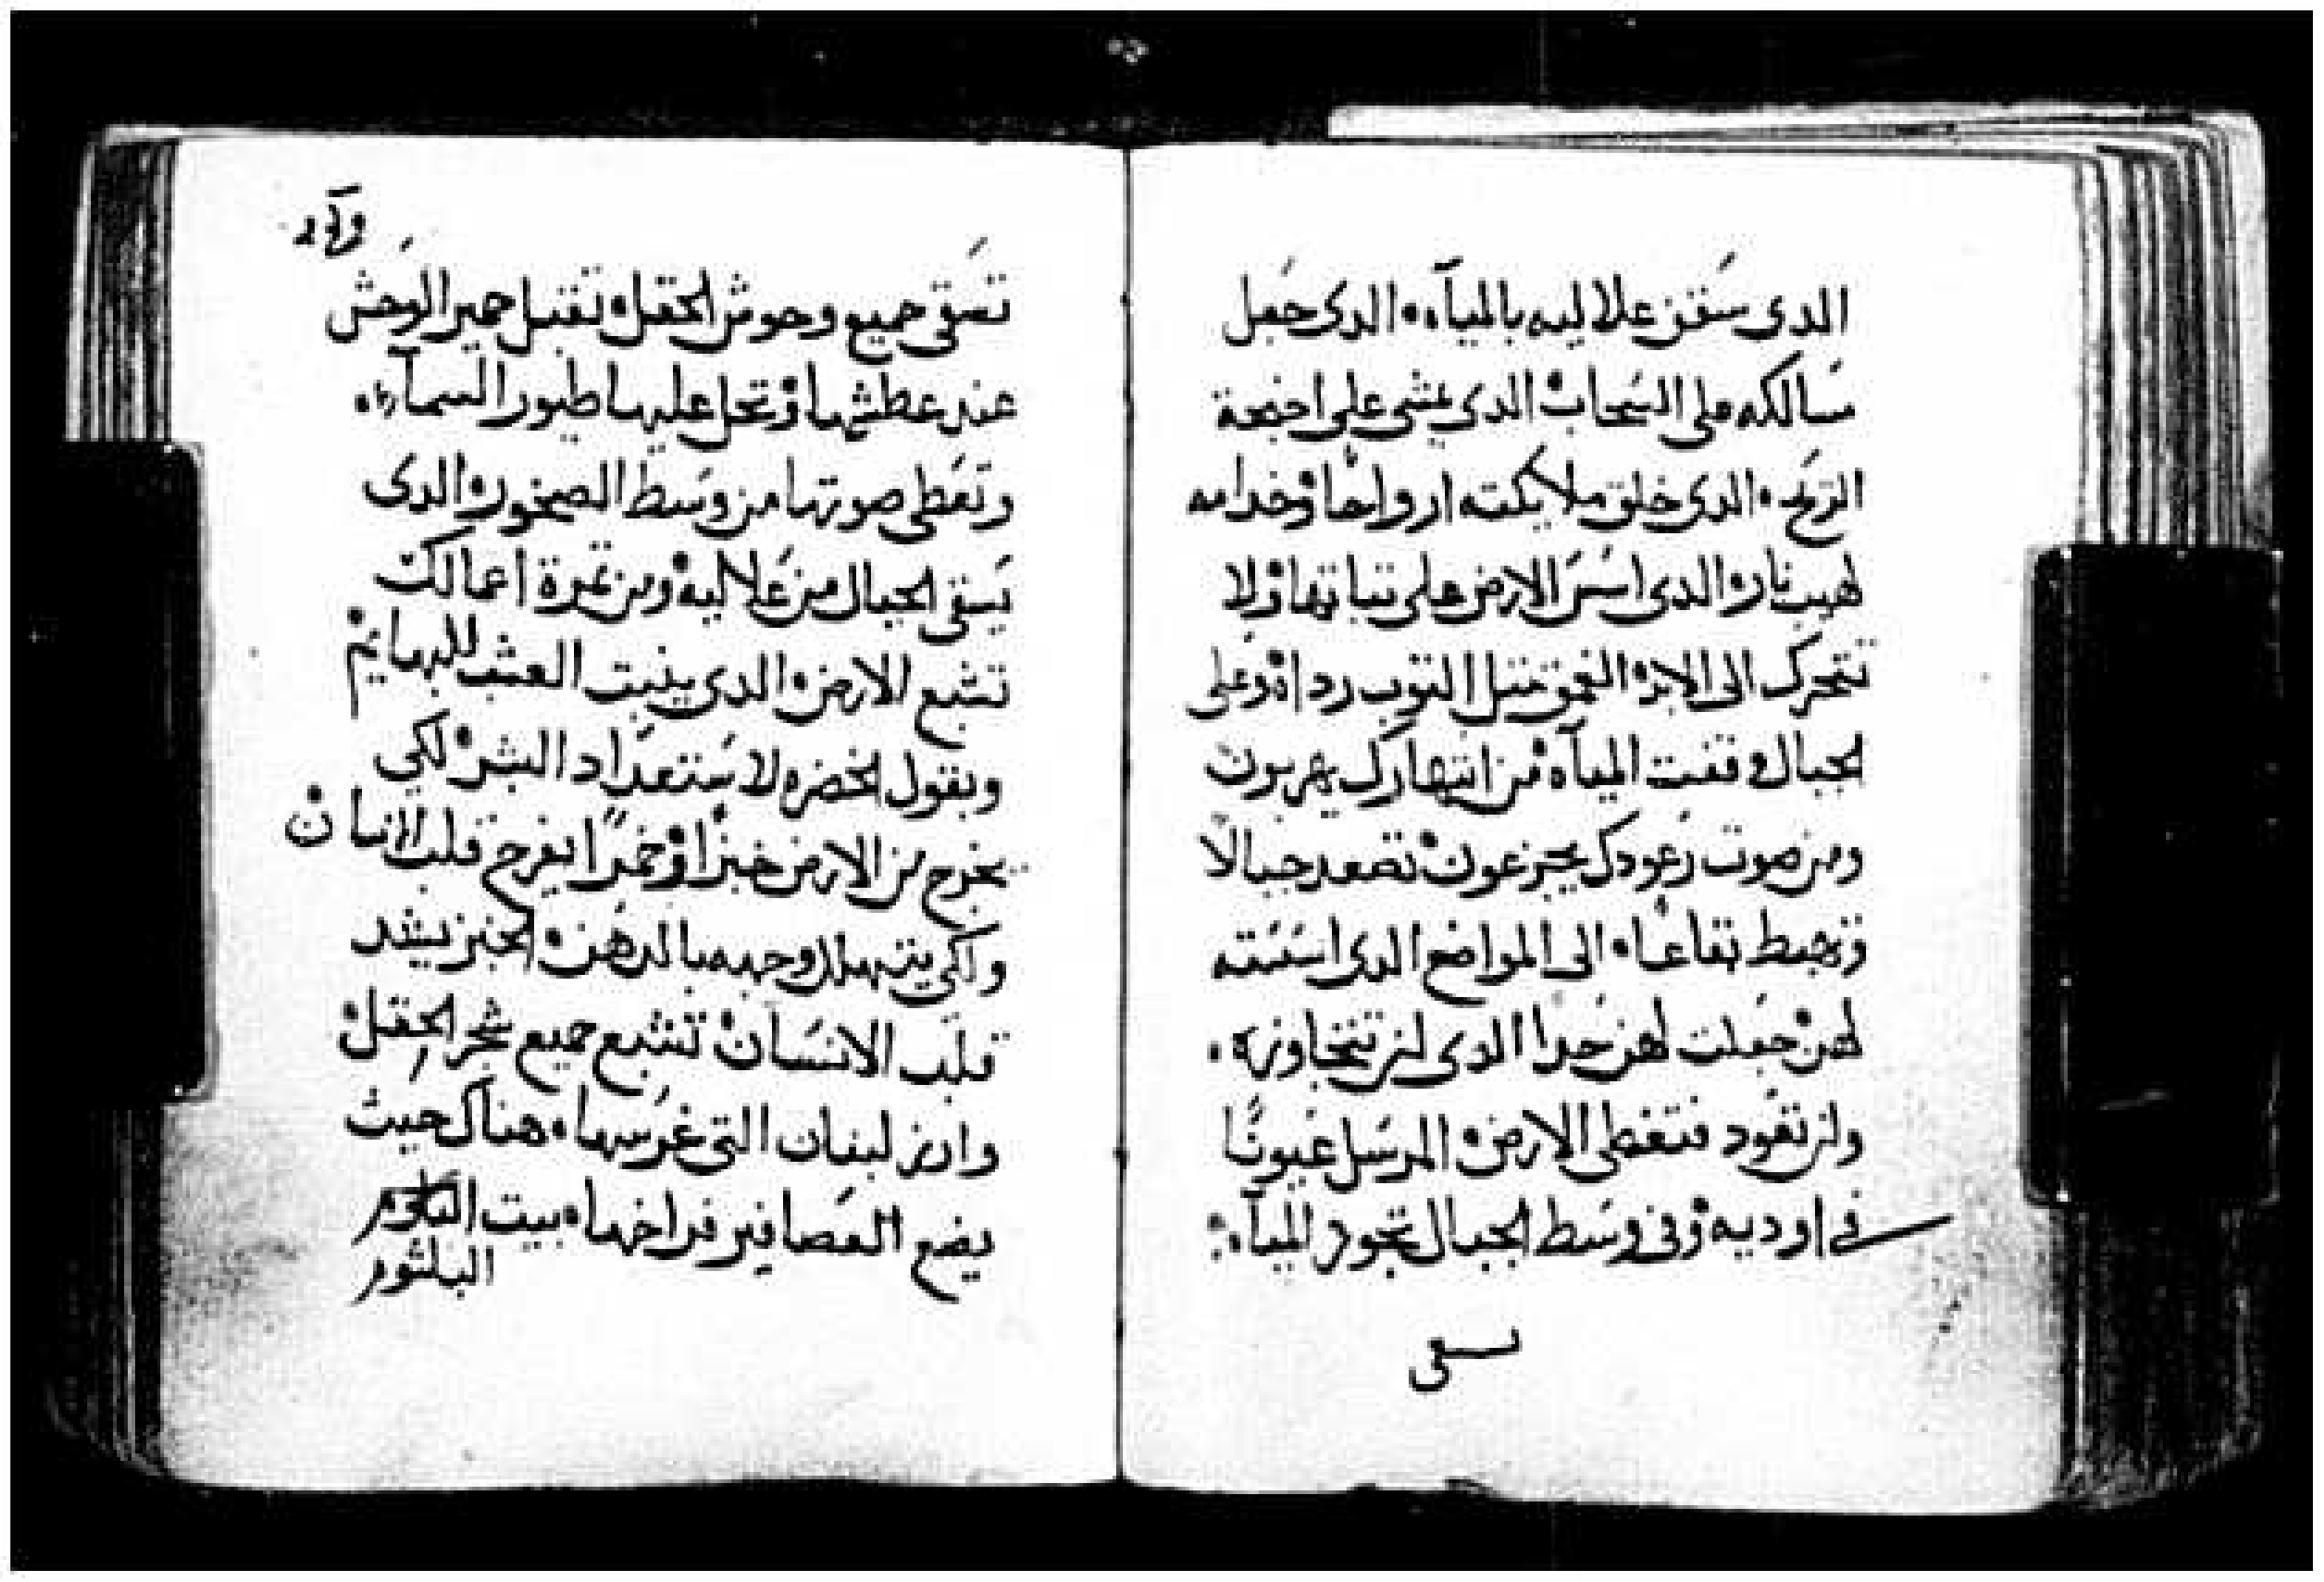 الدى سَقف علاليه بالميآه • الدى جعل
مسالكه على السَحاب • الدى يمشى على اجنحة
الريح • الدى خلق ملايكته ارواحًا • وخدامه
لهيب نار • الدى اسَس الارض على تباتها • ولا
تتحرك الى الابد • الغمق مثل التوب رداه • وعلى
لجبال وقفت الميآه • من انتهارك يهربون
ومن صوت رعودك يجزعون • تصعد جبالًا
وتهبط بقاعًا • الى المواضع الدى اسَسَته
لهن • جعلت لهن حدًا الدى لن تتجاوزه •
ولن تعود فتغطى الارض • المرسَل عيونًا
فى اوديه • وفى وسَط الجبال تجوز الميآه •
تسقى
تسَقى جميع وحوش الحقل • تقبل حمير الوحش
عند عطشها • وتحل عليها طيور السمآء •
وتعطى صوتها من وسَط الصخور • الدى
يَسقى الجبال من علاليه • ومن تمرة اعمالك
تشبع الارض • الدى ينبت العشب للبهايم •
وبقول الخضره لاسَتعداد البشر • لكي
يخرج من الارض خبزًا • وخمرًا يفرح قلب الانسان •
ولكي يتهلل وجهه بالدهن • الخبز يشدد
قلب الانسَان • تشبع جميع شجر الحقل •
وارز لبنان التى غرسها • هناك حيث
يضع العصافير فراخها • بيت
البلشوم